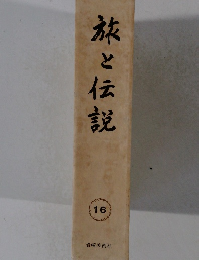 旅と伝説
16